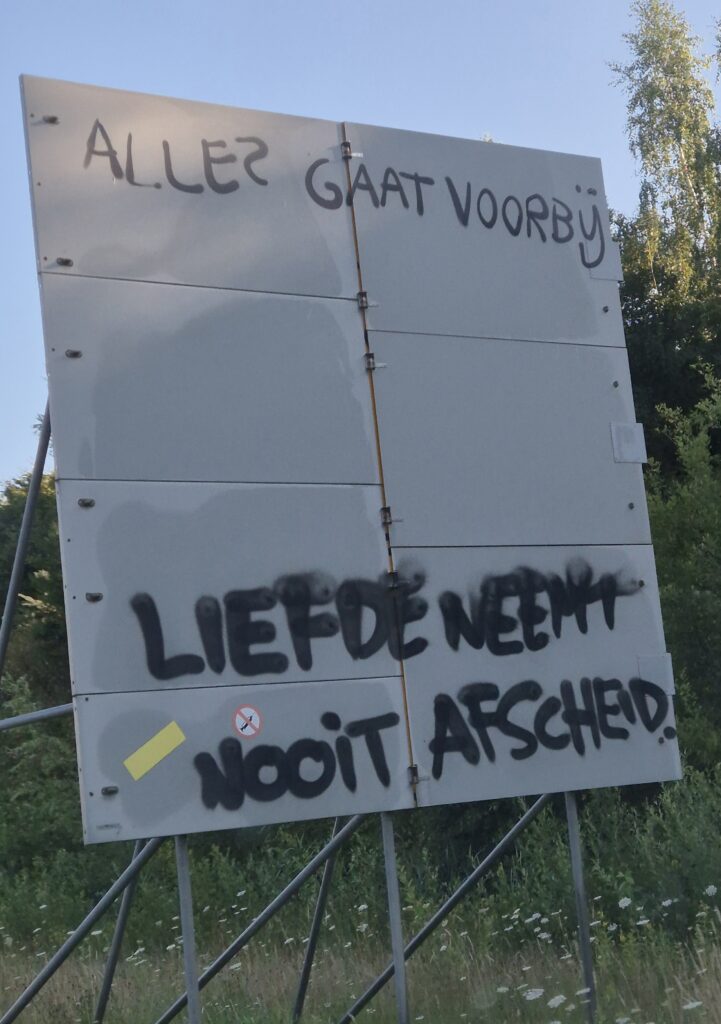 ALLES GAAT VOORBIJ
LIEFDE NEEMT
NOOIT AFSCHEID.